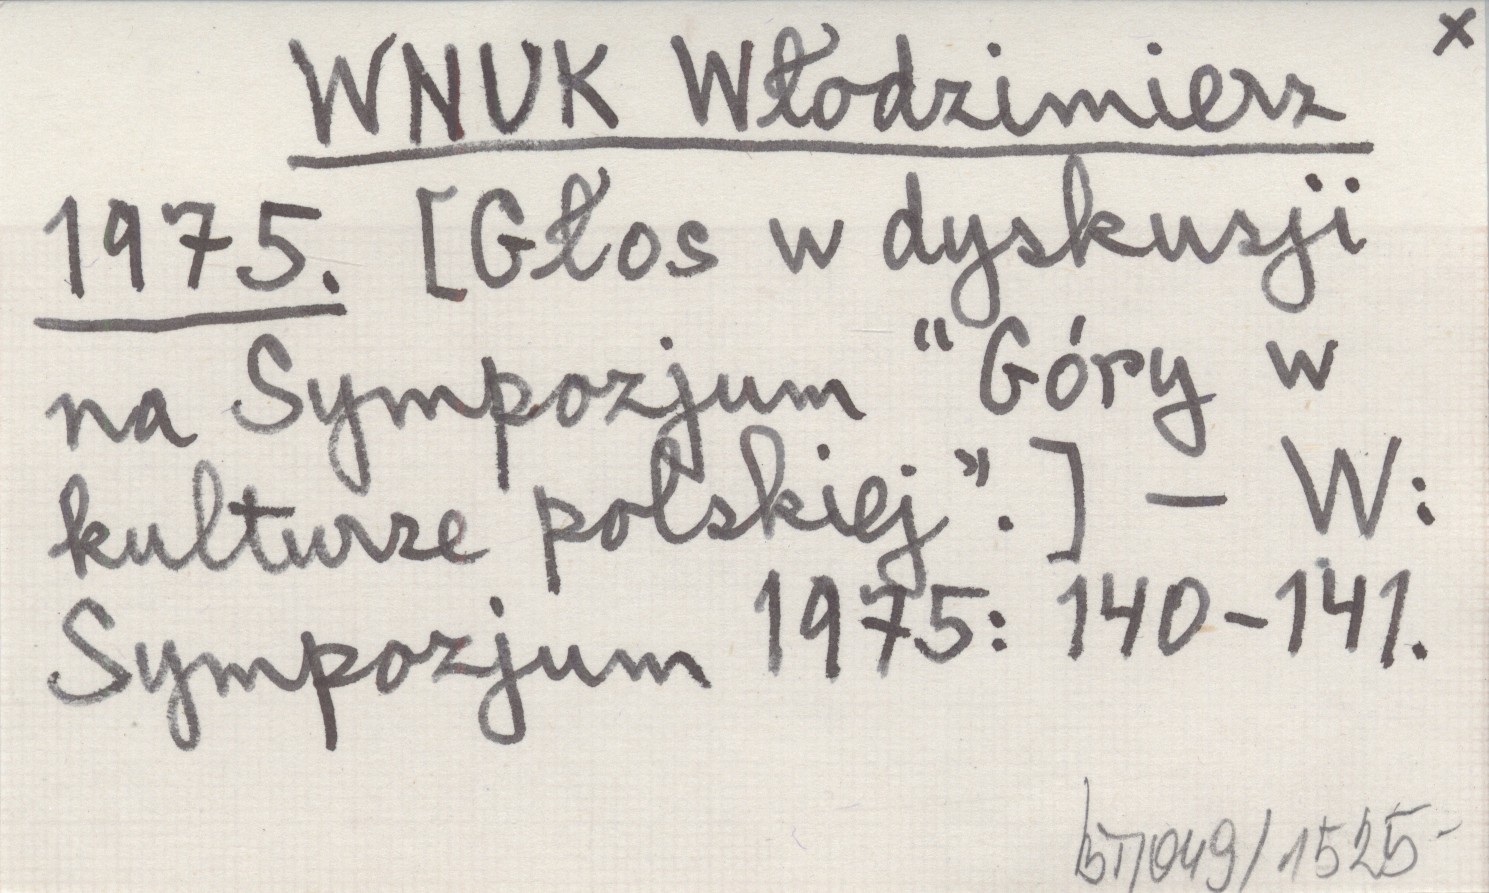 x
WNUK Włodzimierz
1975. [Głos w dyskusji
na Sympozjum "Góry w
kulturze polskiej".] – W:
Sympozjum 1975: 140-141.
/049/1525